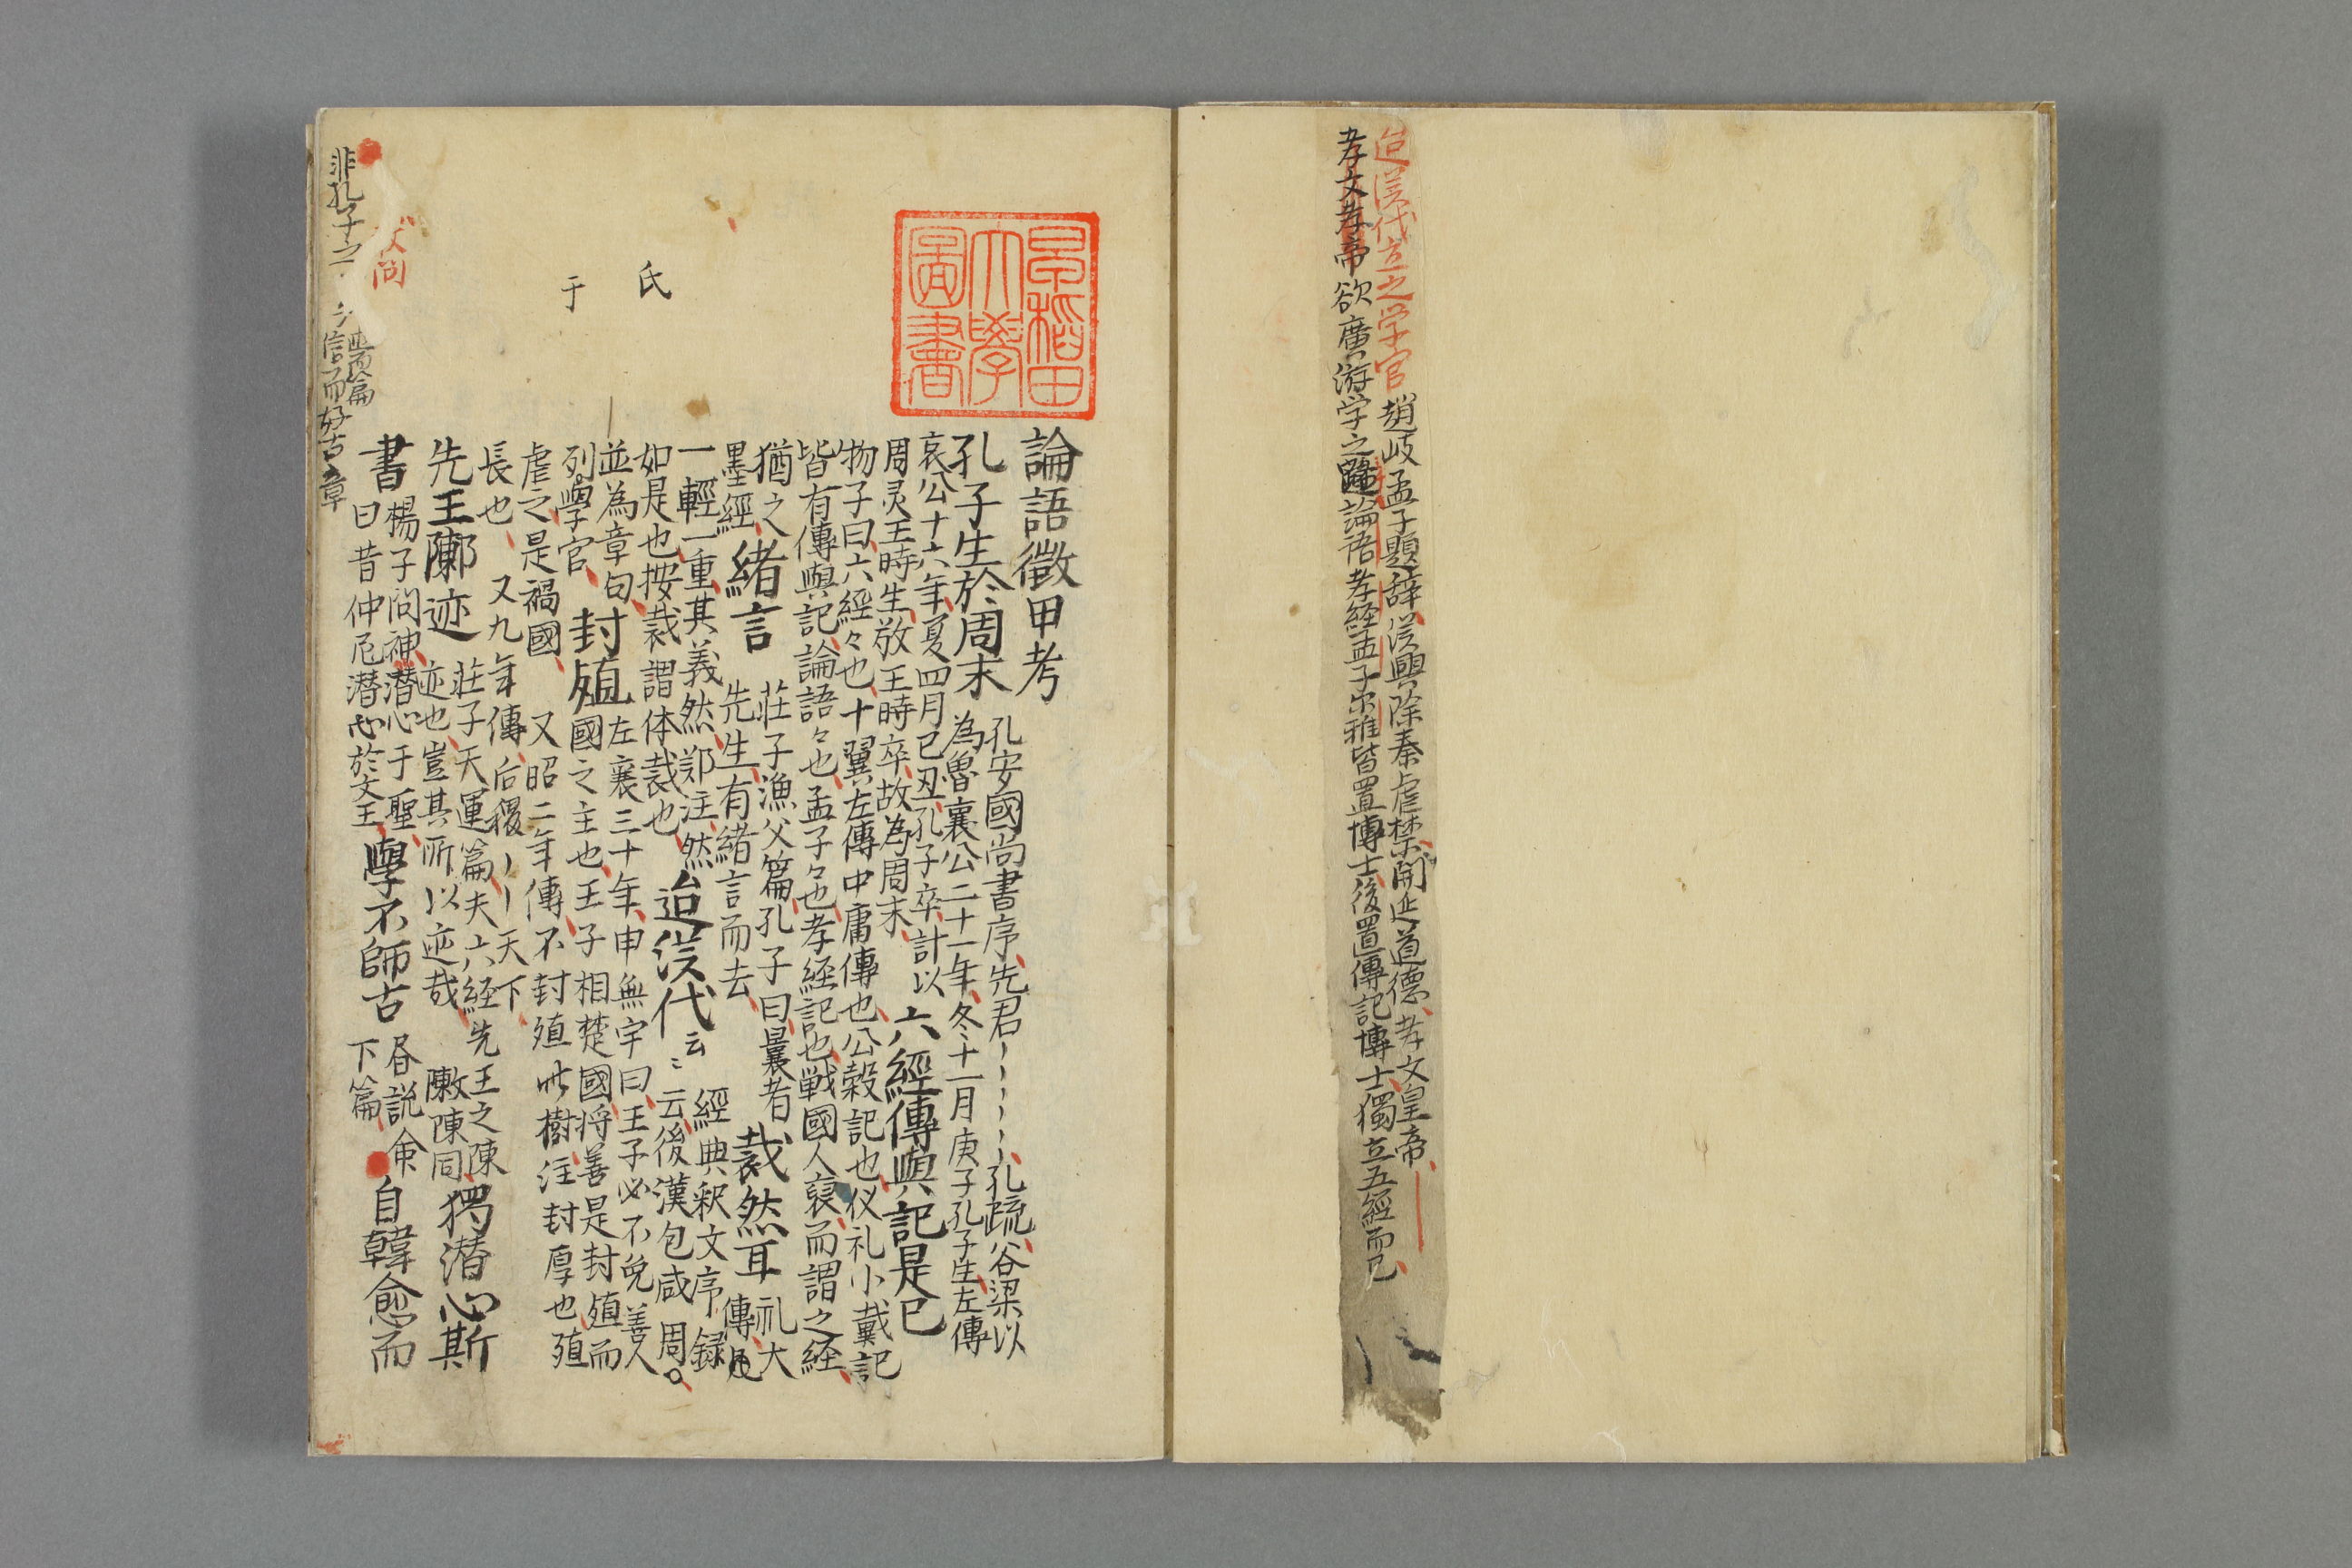 迨漢代立之学官 趙岐孟子題辞漢興除秦虐禁開延道德孝文皇帝
孝文孝帝欲廣游学之路論语孝経孟子尓雅皆置博士後置傳記博士獨立五經而已
早稲田大學圖書
論語徵甲考
孔子生於周末 孔安國尚書序先君孔疏谷梁以
為魯襄公二十一年冬十一月庚子孔子生左傳
哀公十六年夏四月己丑孔子卒計以
周灵王時生敬王時卒故為周末 六經傳與記是已
物子曰六經々也十翼左傳中庸傳也公穀記也仪礼小戴記
皆有傳與記論語々也孟子々也孝経記也戦國人裒而謂之経
猶之
墨經 緒言 莊子漁父篇孔子曰曩者
先生有緒言而去 裁然耳 礼大
傳
一輕一重其義然鄭注然
如是也按裁謂体裁也 迨漢代云々 經典釈文序録
云後漢包咸周
並為章句
列學官 封殖 左襄三十年申無宇曰王子必不免善人
國之主也王子相楚國将善是封殖而
虐之是禍國 又昭二年傳不封殖此樹注封厚也殖
長也 又九年傳后稷天下
先王陳迹 莊子天運篇夫六経先王之陳
迹也豈其所以迹哉 敶陳同 獨潜心斯
書 楊子問神潜心于聖
曰昔仲尼潜心於文王 學不師古 昏説命
下篇 自韓愈而
氏
于
述而篇
信而好古章
非孔子之